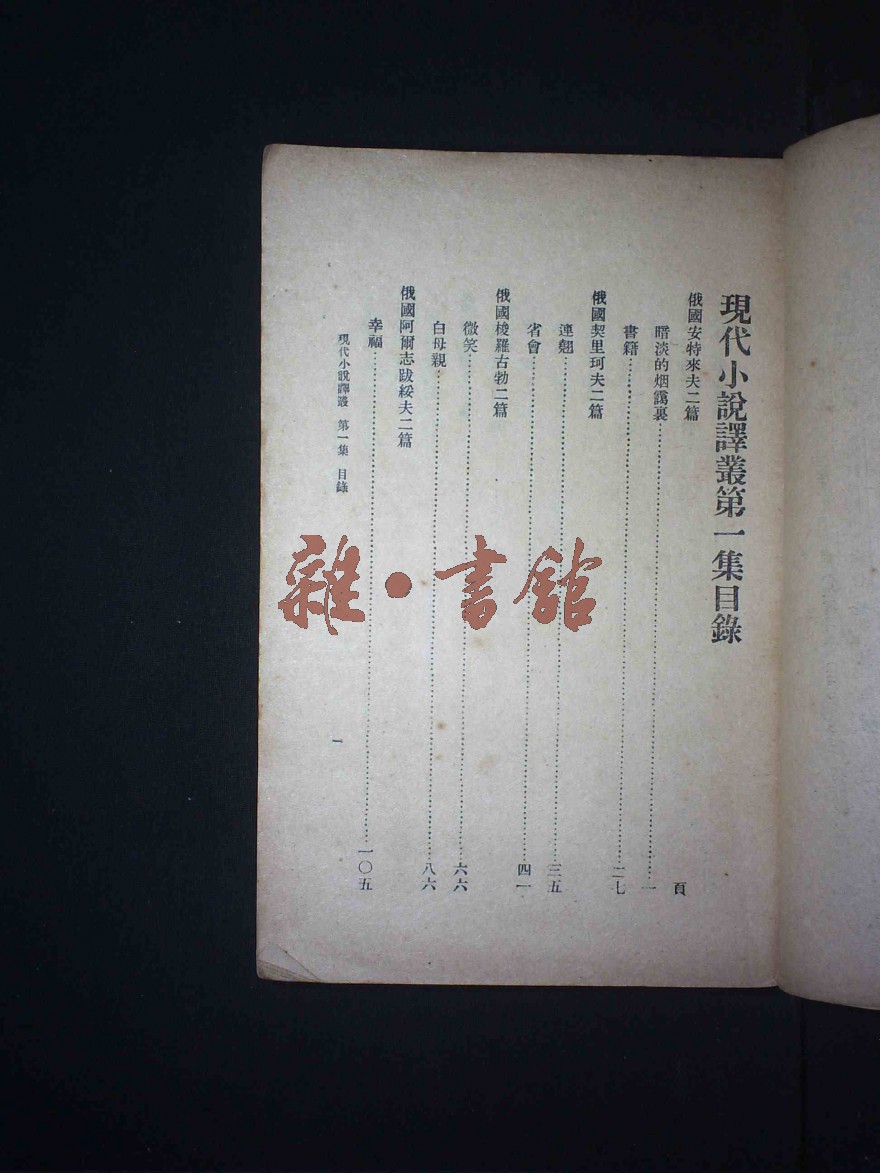 現代小說譯叢第一集目錄
頁
俄國安特來夫二篇
暗淡的烟靄裏……一
書籍……二七
俄國契里珂夫二篇
連翹……三五
省會……四一
俄國梭羅古勃二篇
微笑……六六
白母親……八六
俄國阿爾志跋綏夫二篇
幸福……一〇五
現代小說譯叢 第一集 目錄
一
雜・書館